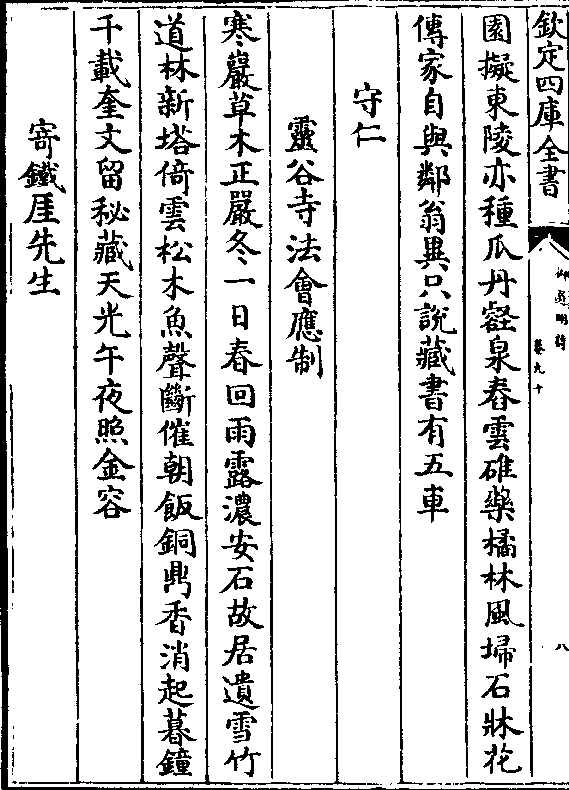 欽定四庫全書
御選明詩
卷九十
八
園擬東陵亦種瓜丹壑泉舂雲碓藥橘林風埽石牀花
傳家自與鄰翁異只說藏書有五車
守仁
靈谷寺法會應制
寒巖草木正嚴冬一日春回雨露濃安石故居遺雪竹
道林新塔倚雲松木魚聲斷催朝飯銅鼎香消起暮鐘
千載奎文留秘藏天光午夜照金容
寄鐵厓先生